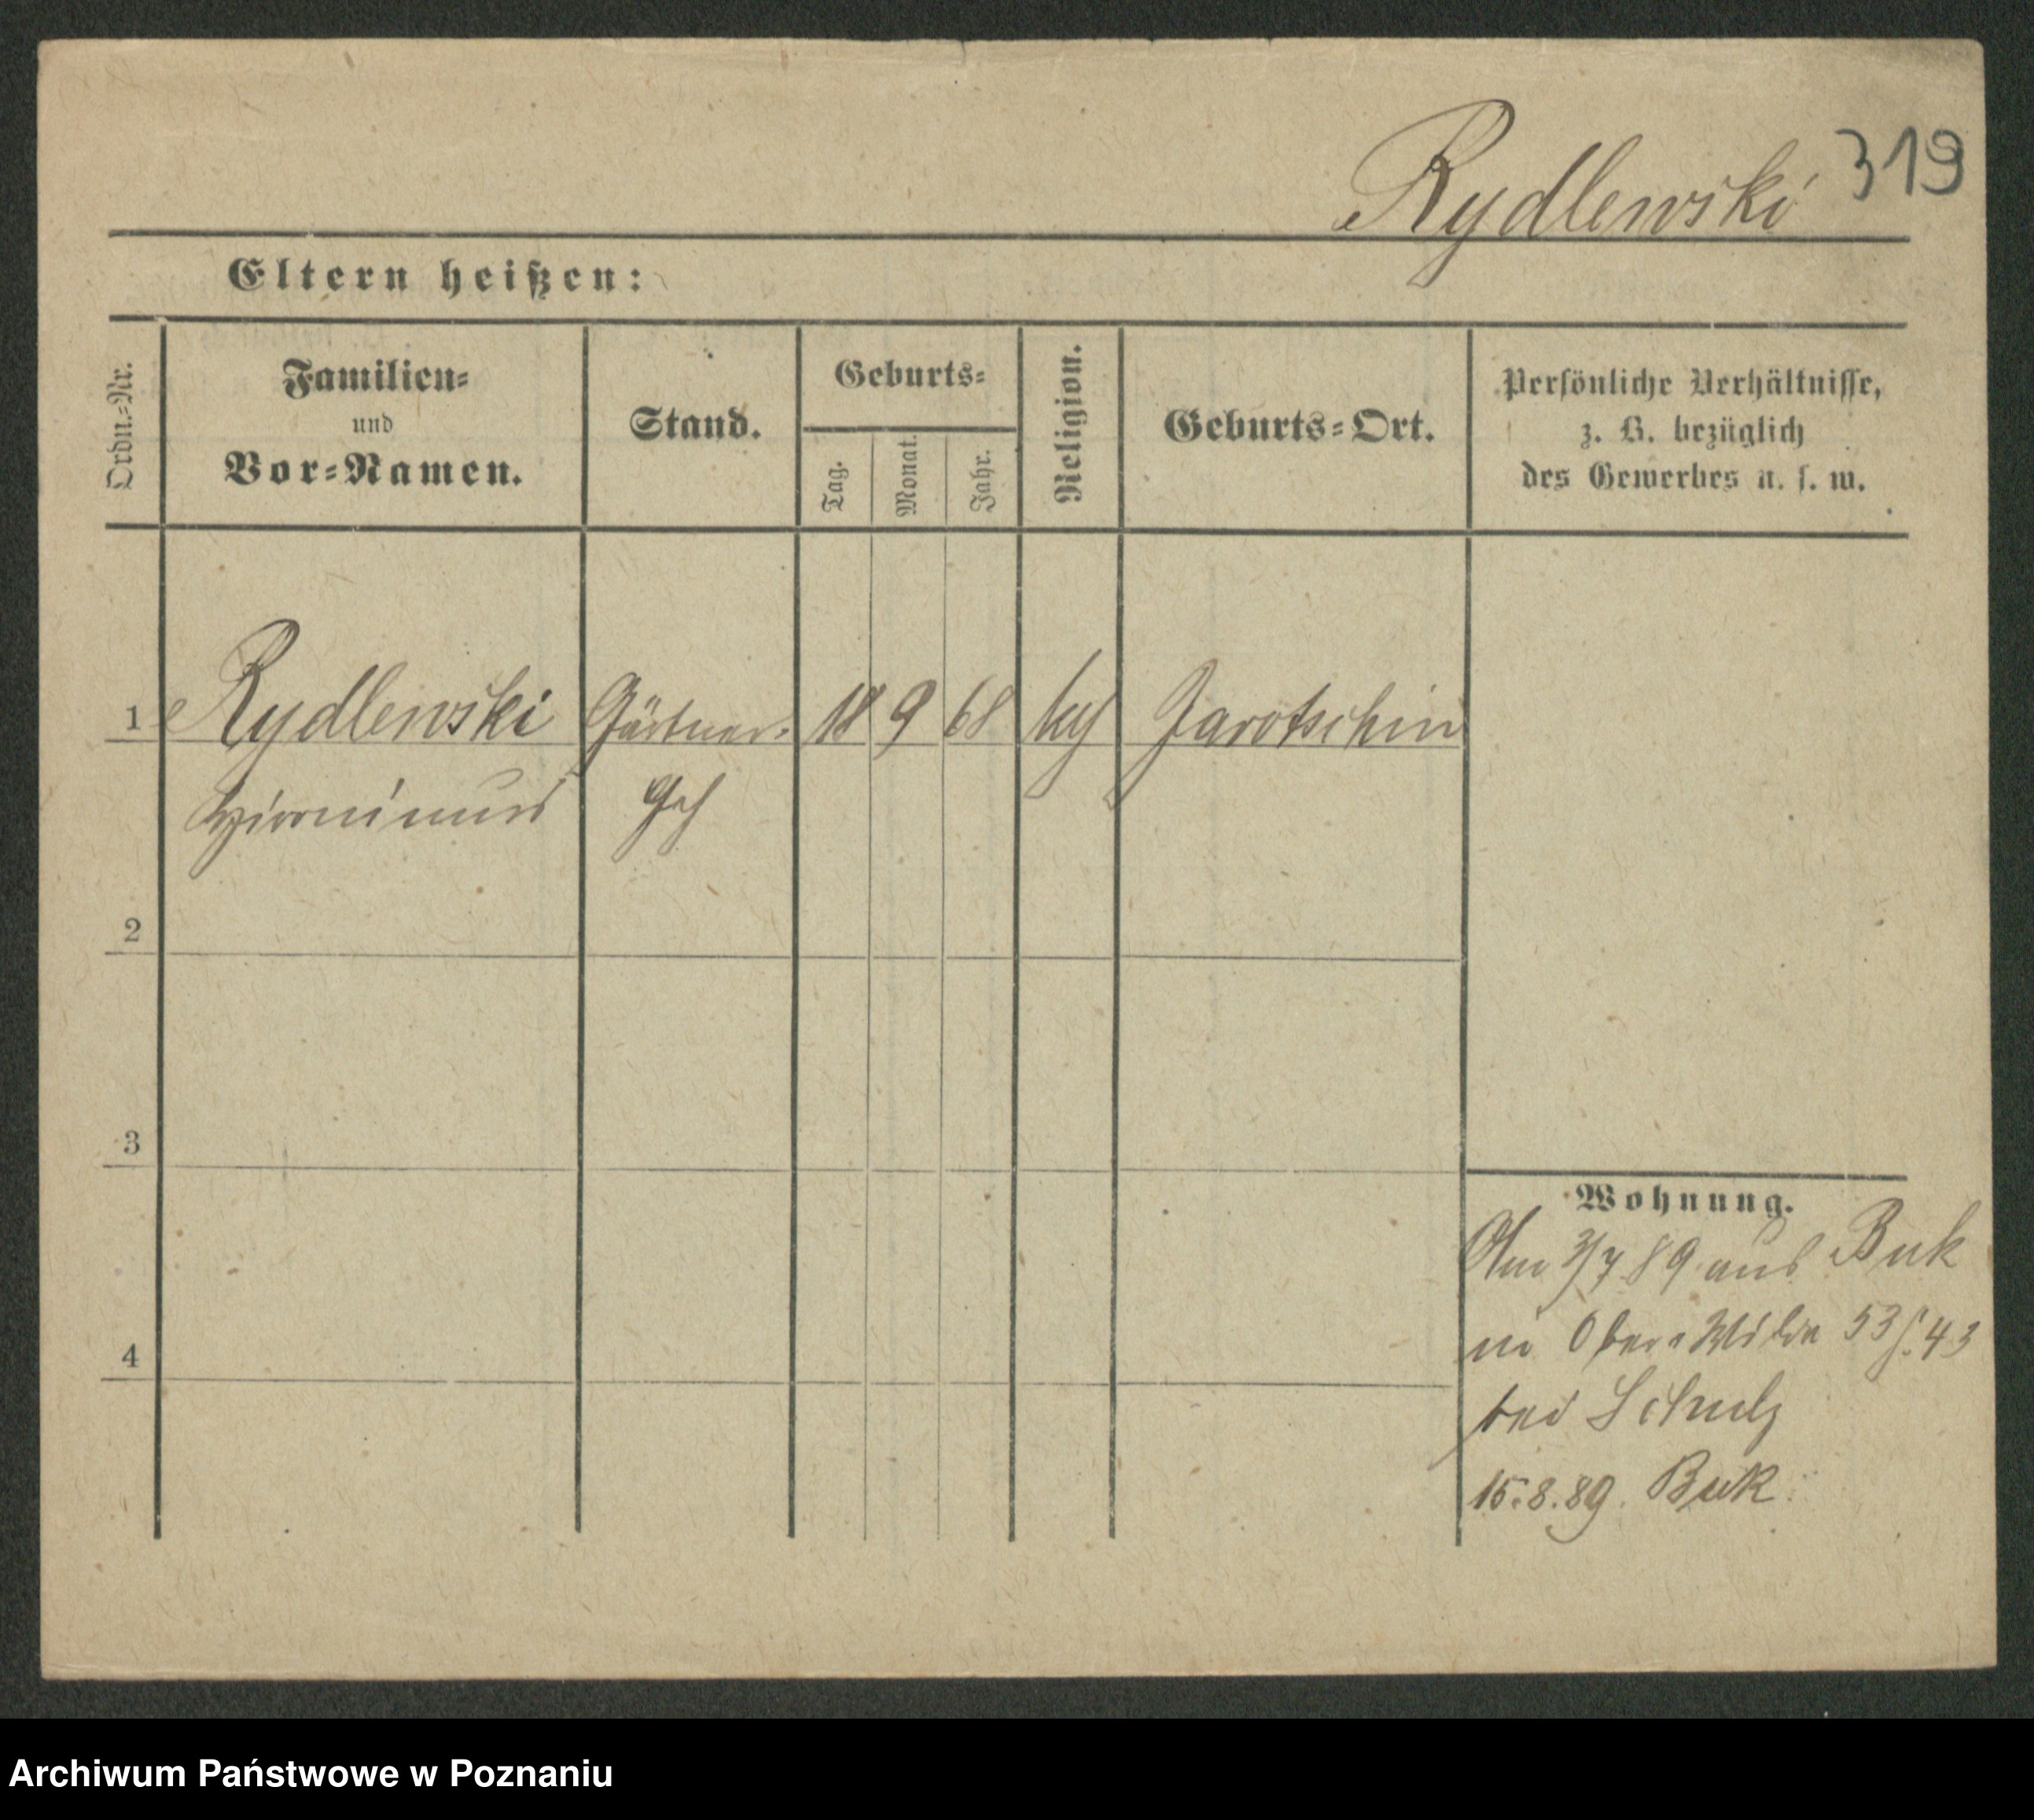 319
Rydlewski
Eltern heißen:
Ordn.-Nr.
Familien-
und
Vor-Namen.
Stand.
Geburts-
Tag.
Monat.
Jahr.
Religion.
Geburts-Ort.
Persönliche Verhältnisse,
z. B. bezüglich
des Gewerbes u. s. w.
1 Rydlewski Gärtner- 18 9 68 Jarotschin
2
3
4
Wohnung.
Am 3/7 89 aus Buk
in Ober Wilda 53/43
bei Schulz
15.8.89. Buk.
Archiwum Państwowe w Poznaniu